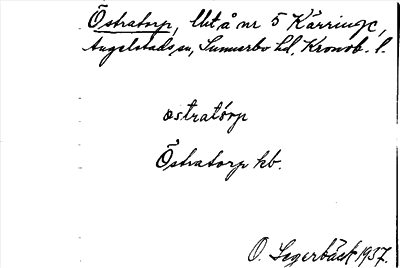 Östratorp, Utå nr 5 Käringe,
Angelstads sn, Sunnerbo hd, Kronob. l.
östratórp
Östratorp hb.
O. Segerbäck 1937.